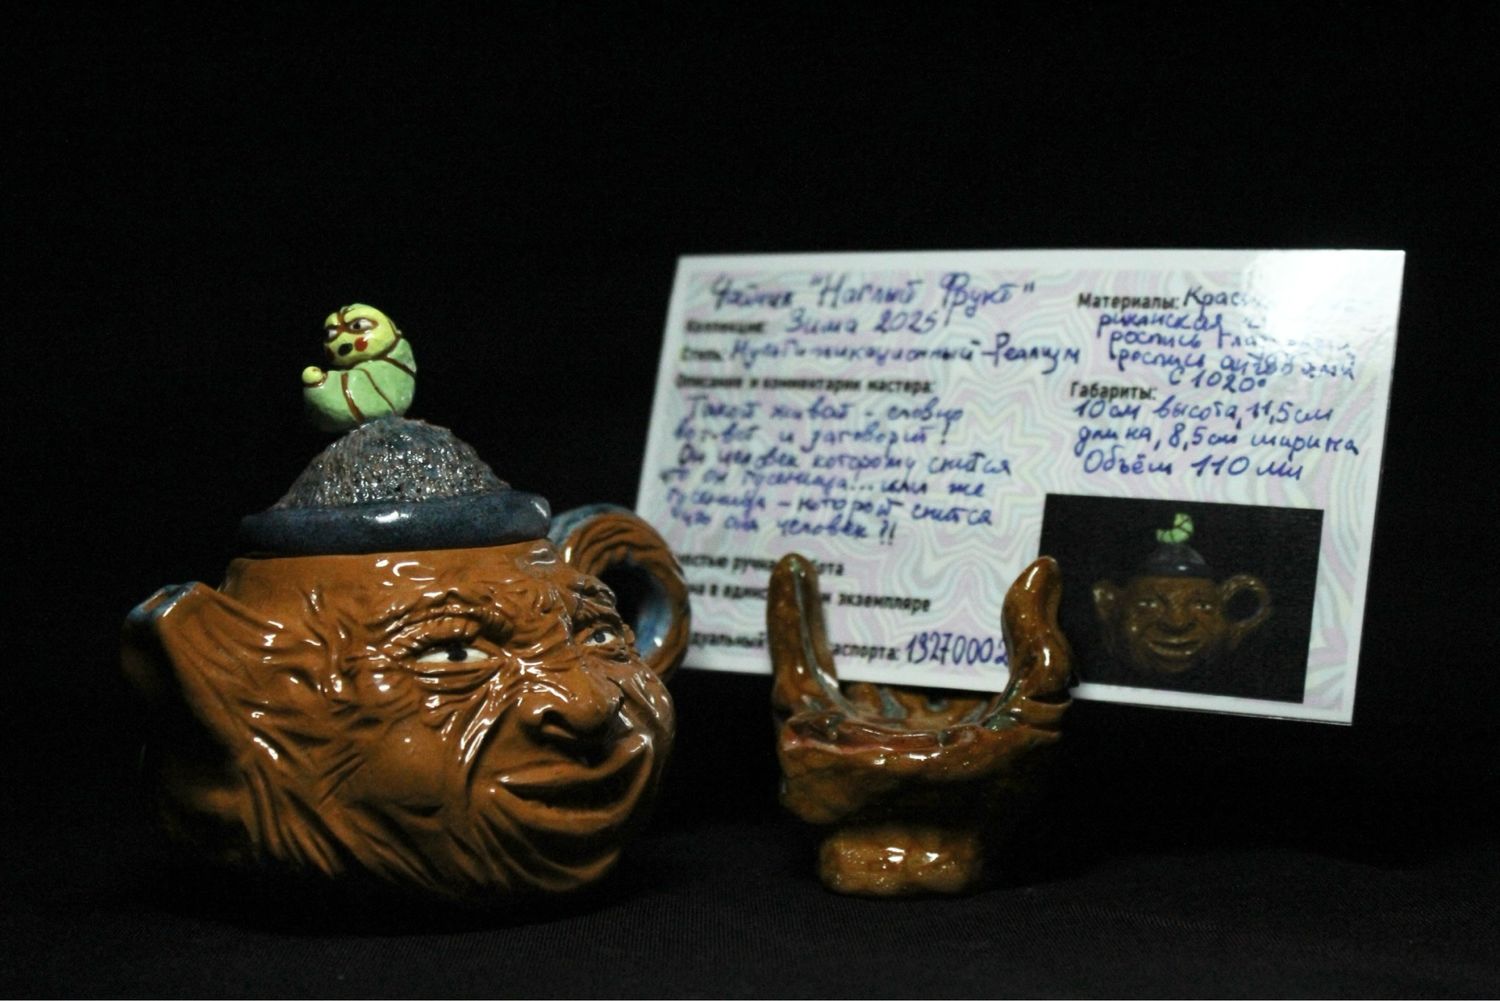 Чайник "Наглый Фрукт"
Коллекция: Зима 2025
Стиль: Мультипликационный-Реализм
Описание и комментарии мастера:
Такой живой - словно
вот-вот и заговорит!
Он человек которому снится
он гусеница... или же
гусеница - которой снится
что она человек?!!
ручная
в экземпляре
паспорта: 19270002
Материалы:
роспись
роспись
С 1020°
Габариты:
10см высота, 11,5см
длина, 8,5см ширина
Объём 110 мл